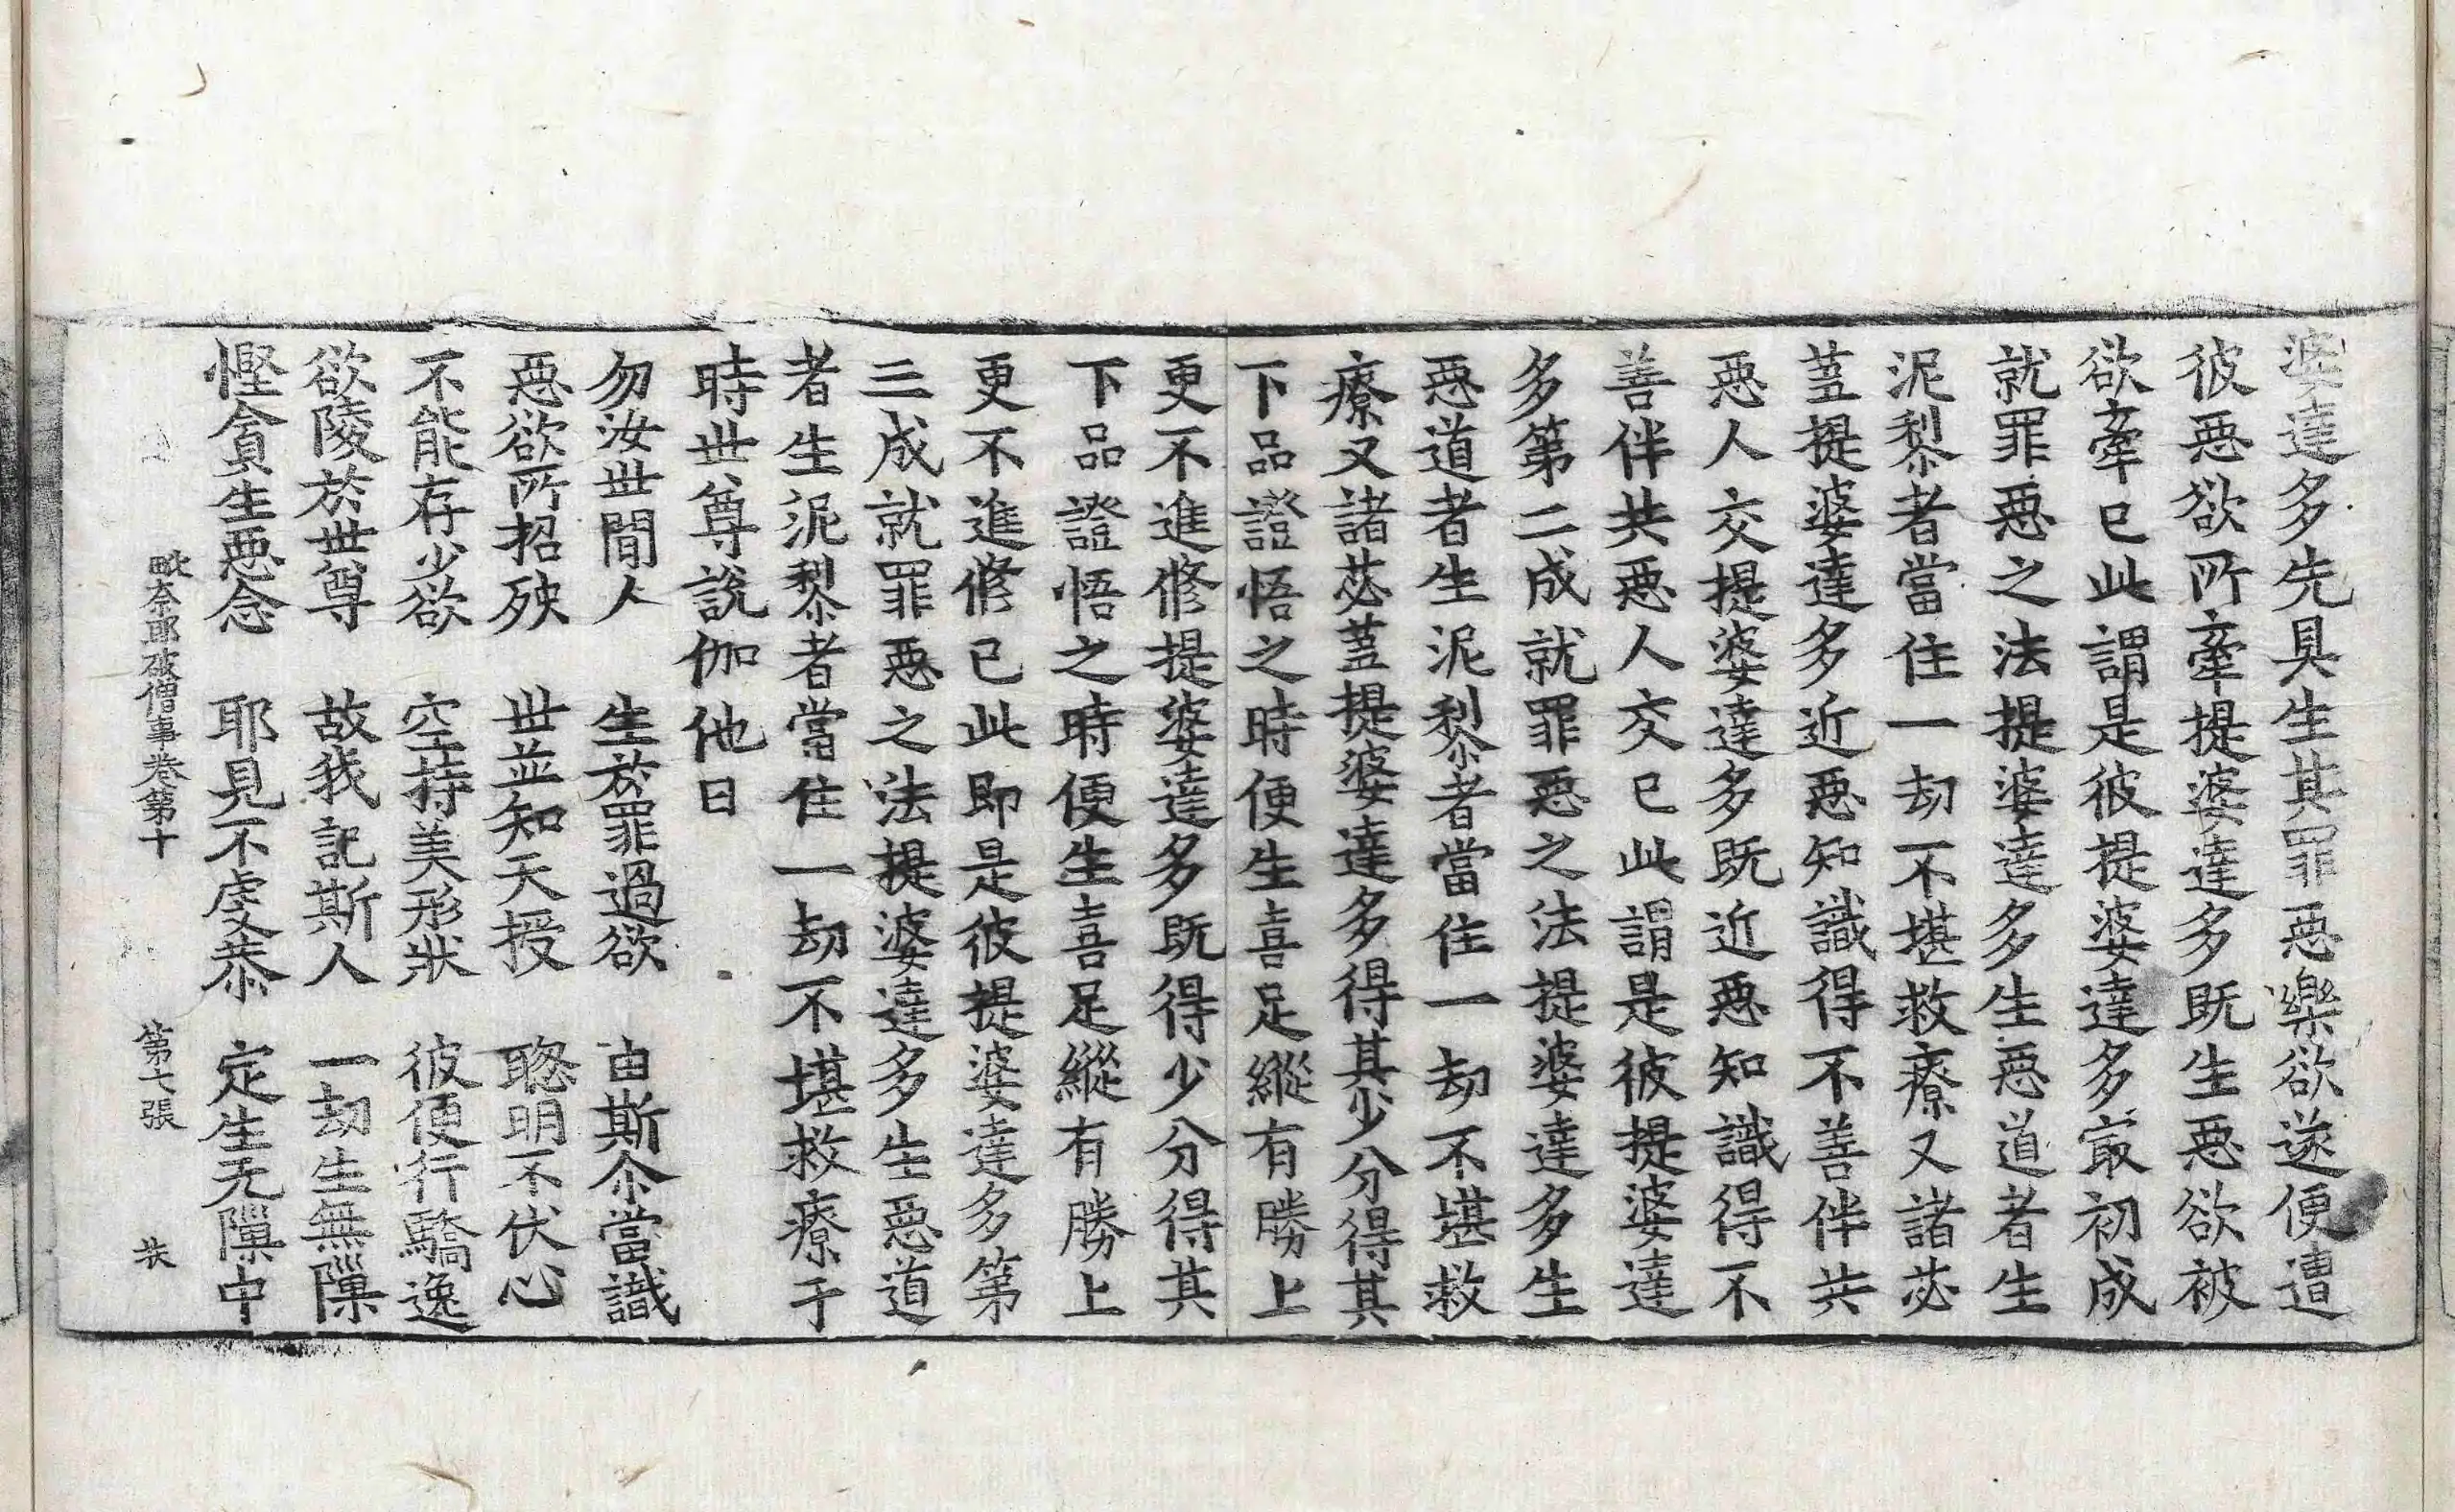 婆達多先具生其罪惡樂欲遂便遭
彼惡欲所牽提婆達多既生惡欲被
欲牽已此謂是彼提婆達多㝡初成
就罪惡之法提婆達多生惡道者生
泥棃者當住一劫不堪救療又諸苾
蒭提婆達多近惡知識得不善伴共
惡人交提婆達多既近惡知識得不
善伴共惡人交已此謂是彼提婆達
多第二成就罪惡之法提婆達多生
惡道者生泥棃者當住一劫不堪救
療又諸苾蒭提婆達多得其少分得其
下品證悟之時便生喜足縱有勝上
更不進修提婆達多既得少分得其
下品證悟之時便生喜足縱有勝上
更不進修已此即是彼提婆達多第
三成就罪惡之法提婆達多生惡道
者生泥棃者當住一劫不堪救療于
時世尊說伽他曰
勿汝世間人　生於罪過欲　由斯尒當識
惡欲所招殃　世並知天授　聦明不伏心
不能存少欲　空持美形狀　彼便行驕逸
欲陵於世尊　故我記斯人　一劫生無隟
慳貪生惡念　耶見不虔恭　定生无隟中
毗奈耶破僧事卷第十　第七張